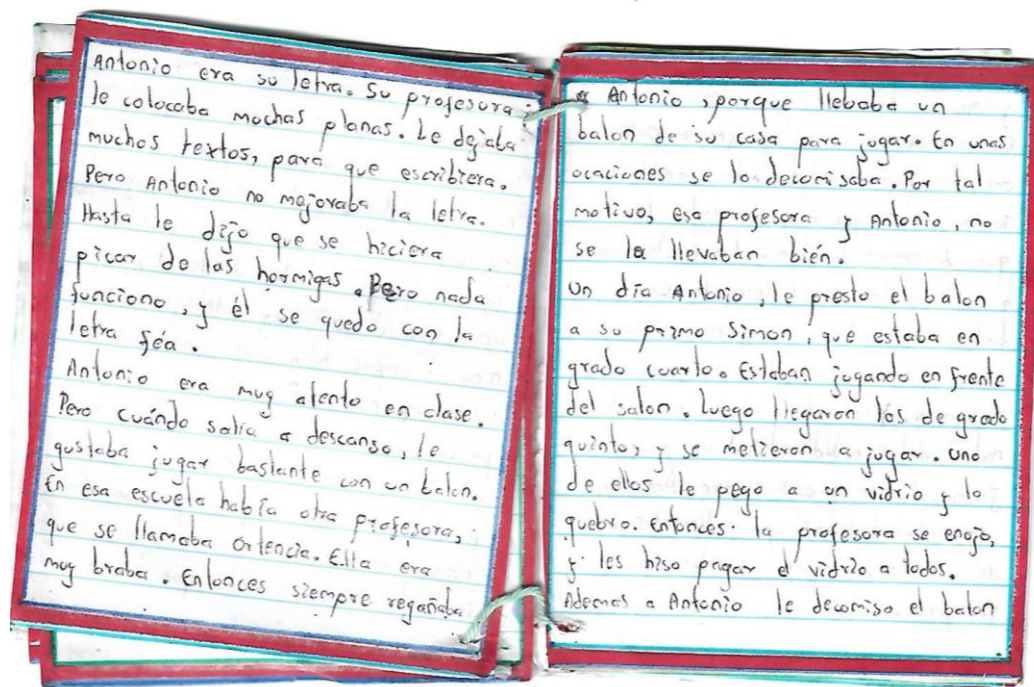 Antonio era su letra. Su profesora
le colocaba muchas planas. Le dejaba
muchos textos, para que escribiera.
Pero Antonio no mejoraba la letra.
Hasta le dijo que se hiciera
picar de las hormigas. Pero nada
funciono, y él se quedo con la
letra féa.
Antonio era muy atento en clase.
Pero cuándo salia a descanso, le
gustaba jugar bastante con un balon.
En esa escuela había otra profesora,
que se llamaba Ortencia. Ella era
muy braba. Entonces siempre regañaba
a Antonio, porque llebaba un
balon de su casa para jugar. En unas
ocaciones se lo decomisaba. Por tal
motivo, esa profesora y Antonio, no
se la llevaban bién.
Un día Antonio, le presto el balon
a su primo Simon, que estaba en
grado cuarto. Estaban jugando en frente
del salon. Luego llegaron los de grado
quinto, y se metieron a jugar. Uno
de ellos le pego a un vidrio y lo
quebro. Entonces la profesora se enojo,
y les hiso pagar el vidrio a todos.
Ademas a Antonio le decomiso el balon